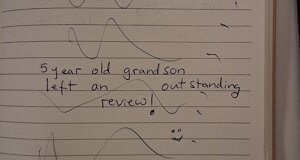 5 year old grandson
left an outstanding
review!